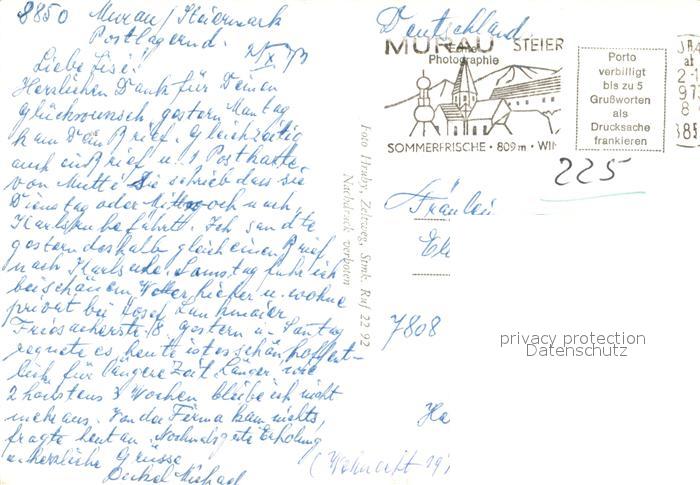 8850 Murau/Steiermark
Postlagernd. 2/X 73
Liebe Lise!
Herzlichen Dank für Deinen
Glückwunsch, gestern Montag
kam Dein Brief. Gleichzeitig
auch ein Brief u. 1 Postkarte
von Mutti. Sie schrieb dass sie
Dienstag oder Mittwoch nach
Karlsruhe fährt. Ich sandte
gestern deshalb gleich einen Brief
nach Karlsruhe. Samstag fuhr ich
bei schönem Wetter hieher u. wohne
privat bei Josef
Friesacherstr. 8. gestern u. Sonntag
regnete es, heute ist es schön, hoffent-
lich für längere Zeit. Länger wie
2 höchstens 3 Wochen bleibe ich nicht
mehr aus. Von der Firma kam nichts,
fragte heut an. Nochmals gute Erholung
u. herzliche Grüsse
Onkel Michael
Foto Hruby, Zeltweg, Stmk. Ruf 22 92
Nachdruck verboten
Deutschland
MURAU STEIER
Echte
Photographie
SOMMERFRISCHE · 809m · WIN
Porto
verbilligt
bis zu 5
Grußworten
als
Drucksache
frankieren
225
Fräulein
7808
privacy protection
Datenschutz